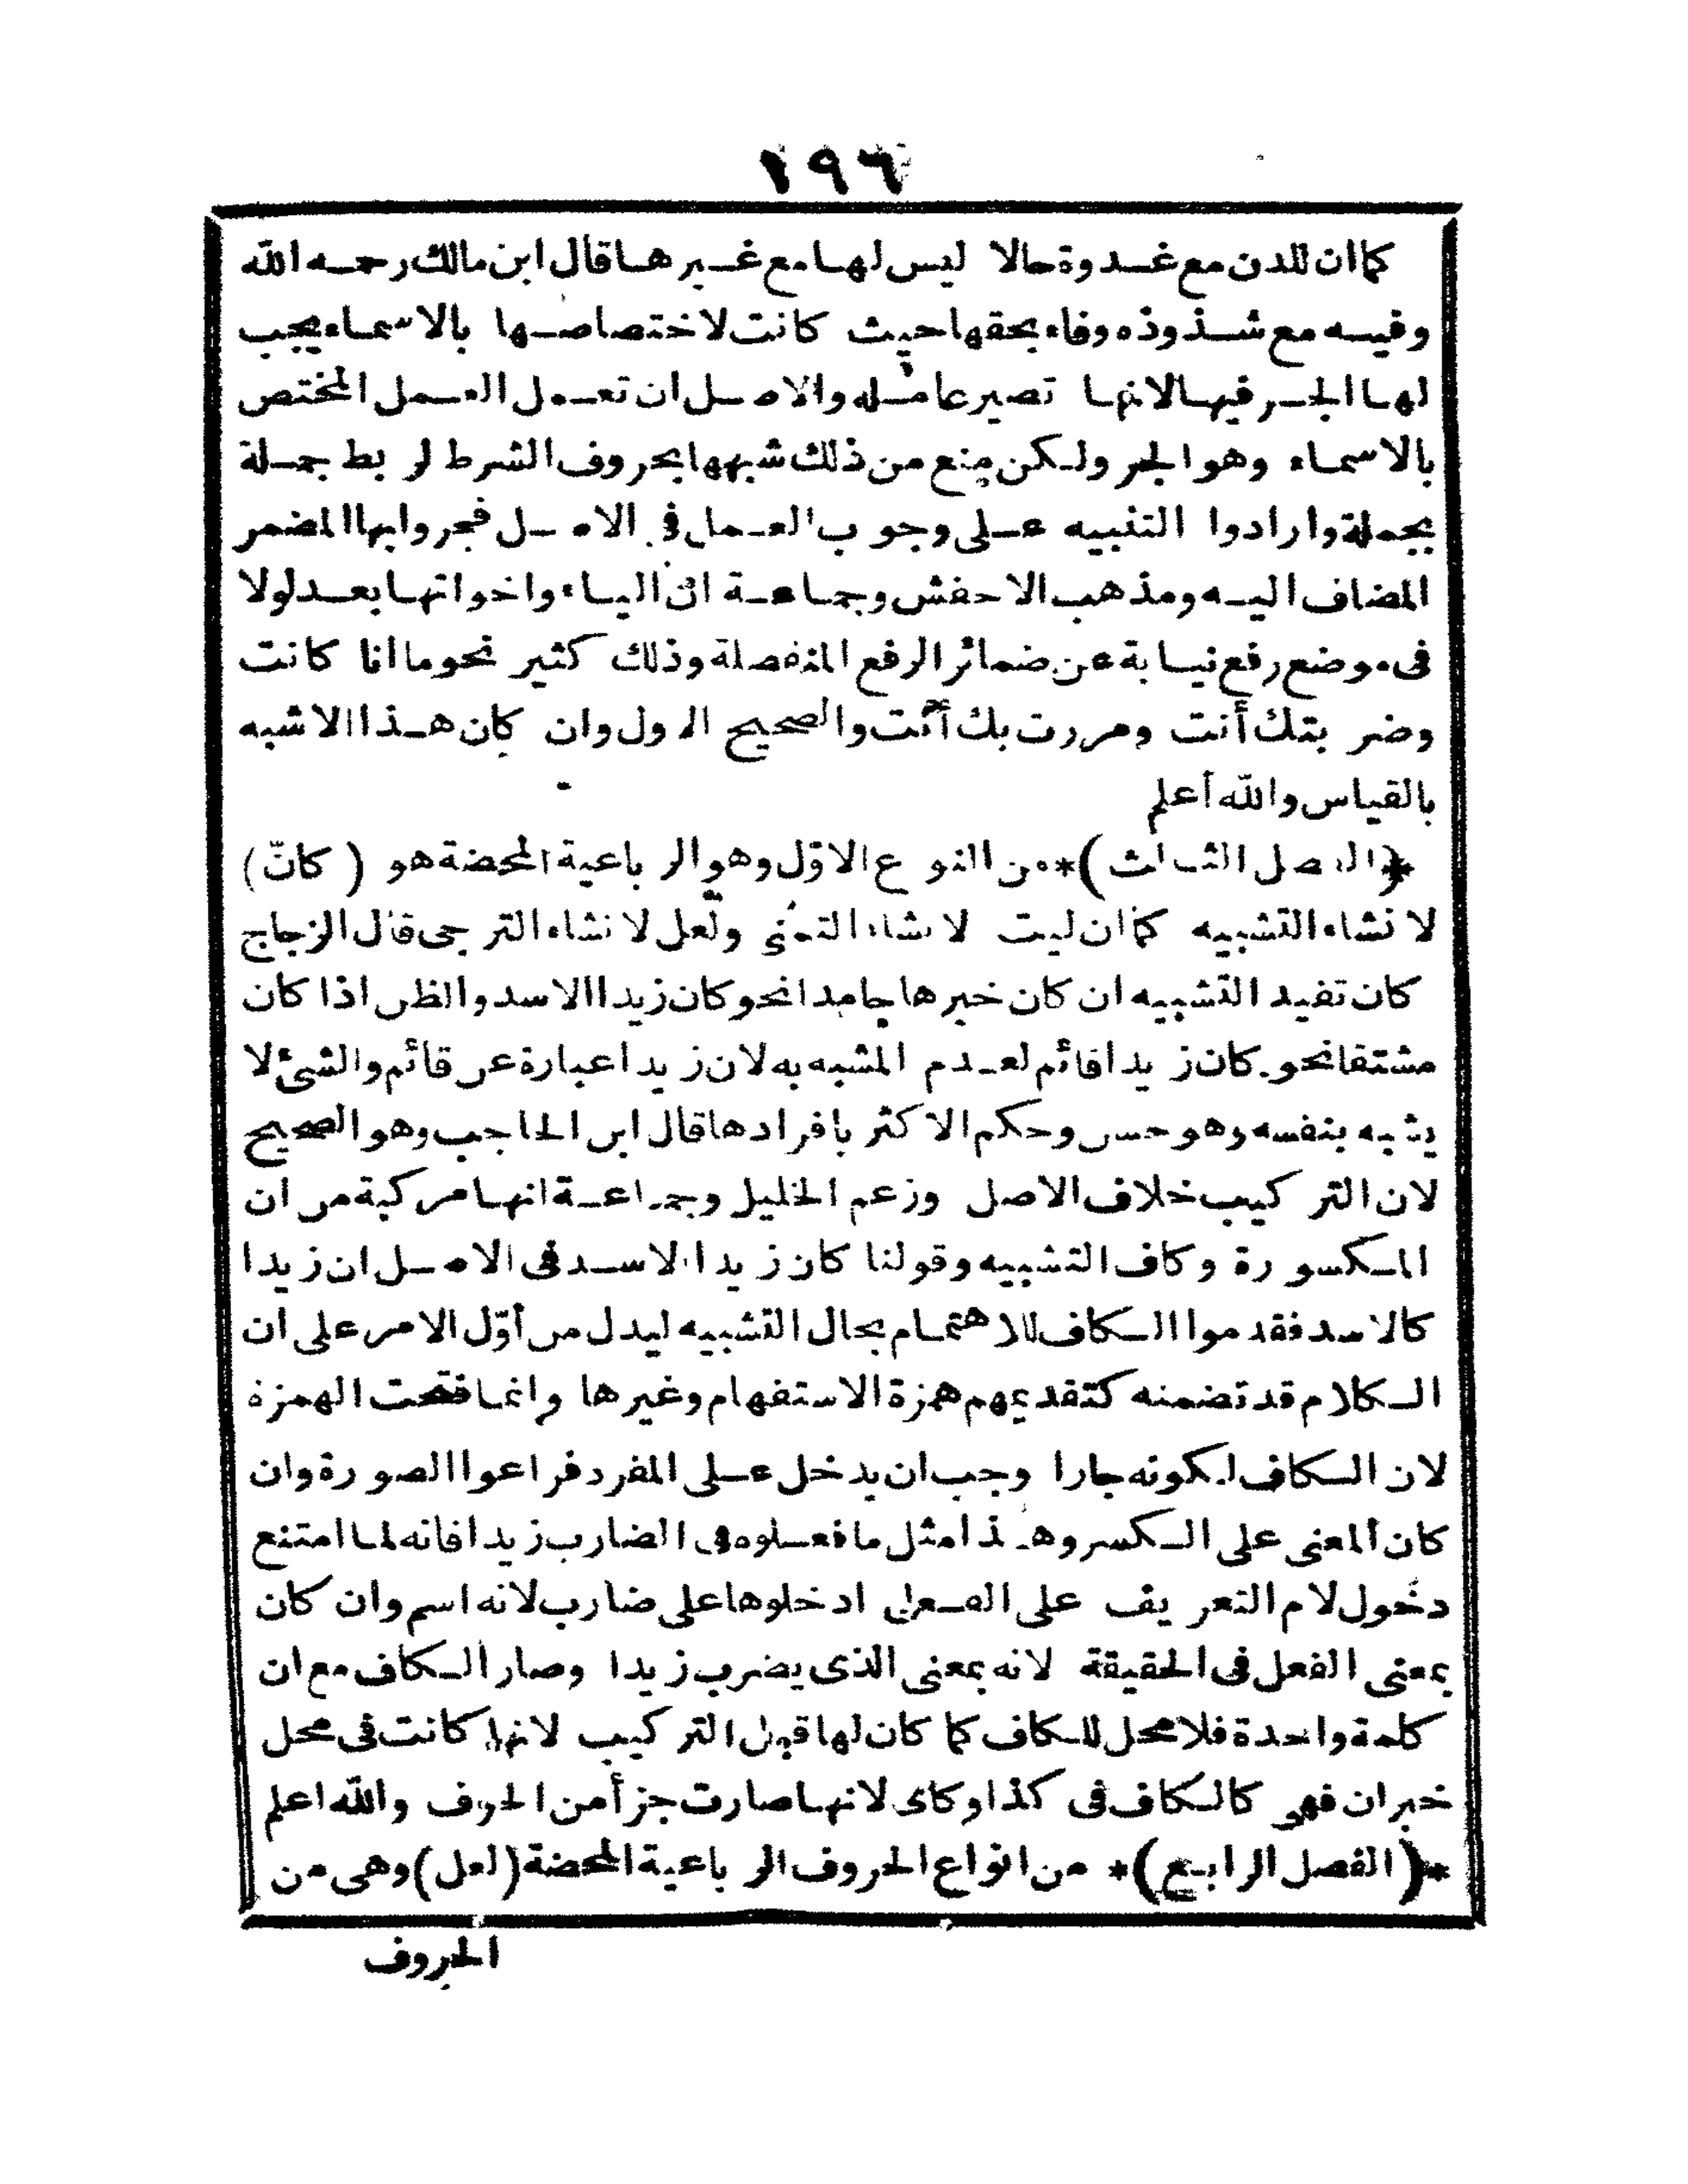 ١٩٦
كما ان للدن مع غدوة حالا ليس لها مع غيرها قال ابن مالك رحمه الله
وفيه مع شذوذه وفاء بحقها حيث كانت لاختصاصها بالاسماء يجب
لها الجر فيها لانها تصير عاملة والاصل ان تعمل العمل المختص
بالاسماء وهو الجر ولكن منع من ذلك شبهها بحروف الشرط لربط جملة
بجملة وارادوا التنبيه على وجوب العمل فى الاصل فجروا بها المضمر
المضاف اليه ومذهب الاخفش وجماعة ان الياء واخواتها بعد لولا
فى موضع رفع نيابة عن ضمائر الرفع المنفصلة وذلك كثير نحو ما انا كانت
وضربتك أنت ومررت بك أنت والصحيح الاول وان كان هذا الاشبه
بالقياس والله أعلم
*(الفصل الثالث)* من النوع الاوّل وهو الرباعية المحضة هو (كانّ)
لانشاء التشبيه كما ان ليت لانشاء التمنى ولعل لانشاء الترجى قال الزجاج
كان تفيد التشبيه ان كان خبرها جامدا نحو كان زيدا الاسد والظن اذا كان
مشتقا نحو كان زيدا قائم لعدم المشبه به لان زيدا عبارة عن قائم والشئ لا
يشبه بنفسه وهو حسن وحكم الاكثر بافرادها قال ابن الحاجب وهو الصحيح
لان التركيب خلاف الاصل وزعم الخليل وجماعة انها مركبة من ان
المكسورة وكاف التشبيه وقولنا كان زيدا الاسد فى الاصل ان زيدا
كالاسد فقدموا الكاف للاهتمام بحال التشبيه ليدل من أوّل الامر على ان
الكلام قد تضمنه كتقديمهم همزة الاستفهام وغيرها وانما فتحت الهمزة
لان الكاف لكونه جارا وجب ان يدخل على المفرد فراعوا الصورة وان
كان المعنى على الكسر وهذا مثل ما فعلوه فى الضارب زيدا فانه لما امتنع
دخول لام التعريف على الفعل ادخلوها على ضارب لانه اسم وان كان
بمعنى الفعل فى الحقيقة لانه بمعنى الذى يضرب زيدا وصار الكاف مع ان
كلمة واحدة فلا محل للكاف كما كان لها قبل التركيب لانها كانت فى محل
خبر ان فهى كالكاف فى كذا وكاى لانها صارت جزأ من الحرف والله اعلم
*(الفصل الرابع)* من انواع الحروف الرباعية المحضة (لعل) وهى من
الحروف